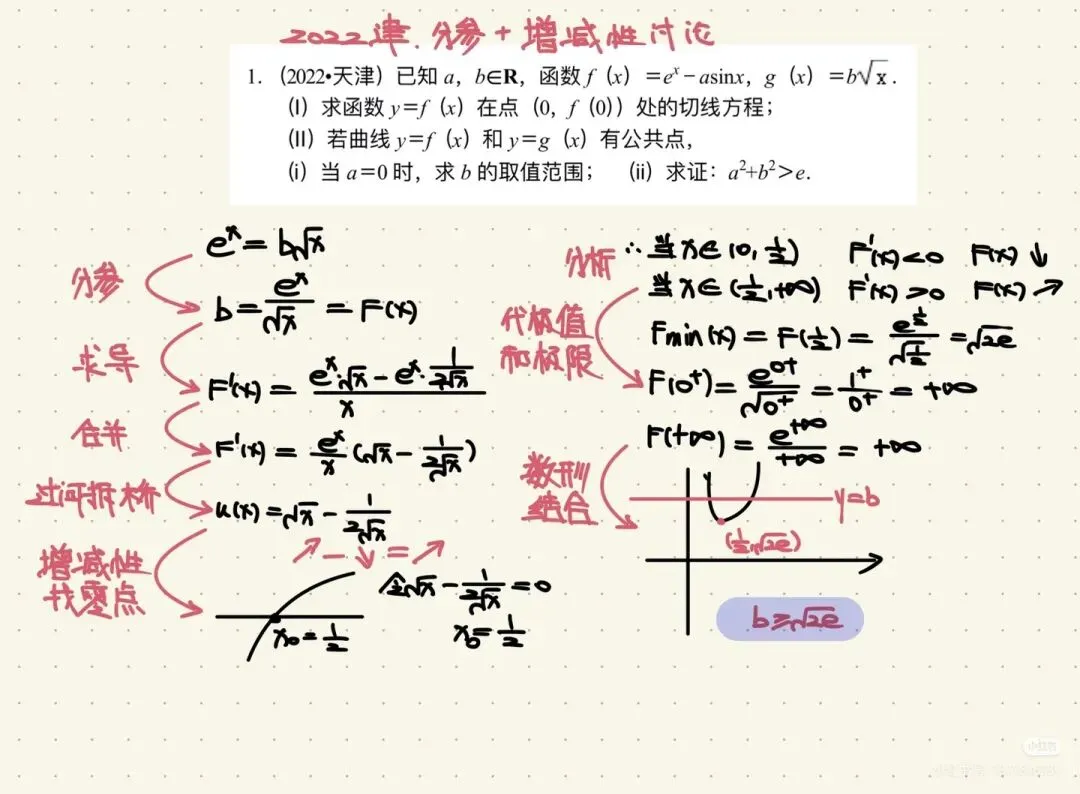 2022津.分参+增减性讨论
1.（2022•天津）已知 a，b∈R，函数 f（x）=eˣ－asinx，g（x）=b√x.
（I）求函数 y=f（x）在点（0，f（0））处的切线方程；
（II）若曲线 y=f（x）和 y=g（x）有公共点，
（i）当 a=0 时，求 b 的取值范围； （ii）求证：a²+b²>e.
eˣ = b√x
分参
b = eˣ/√x = F(x)
求导
F'(x) = (eˣ·√x - eˣ·1/(2√x))/x
合并
F'(x) = eˣ/x (√x - 1/(2√x))
过河拆桥
u(x) = √x - 1/(2√x)
↗ - ↘ = ↗
增减性
找零点
x₀ = 1/2
令√x - 1/(2√x) = 0
x₀ = 1/2
分析
∴ 当x∈(0, 1/2) F'(x)<0 F(x)↓
当x∈(1/2, +∞) F'(x)>0 F(x)↗
代极值
和极限
Fmin(x) = F(1/2) = e^(1/2)/√(1/2) = √2e
F(0⁺) = e^(0+)/√0⁺ = 1⁺/0⁺ = +∞
F(+∞) = e^(+∞)/+∞ = +∞
数形
结合
y=b
(1/2, √2e)
b≥√2e
小红书